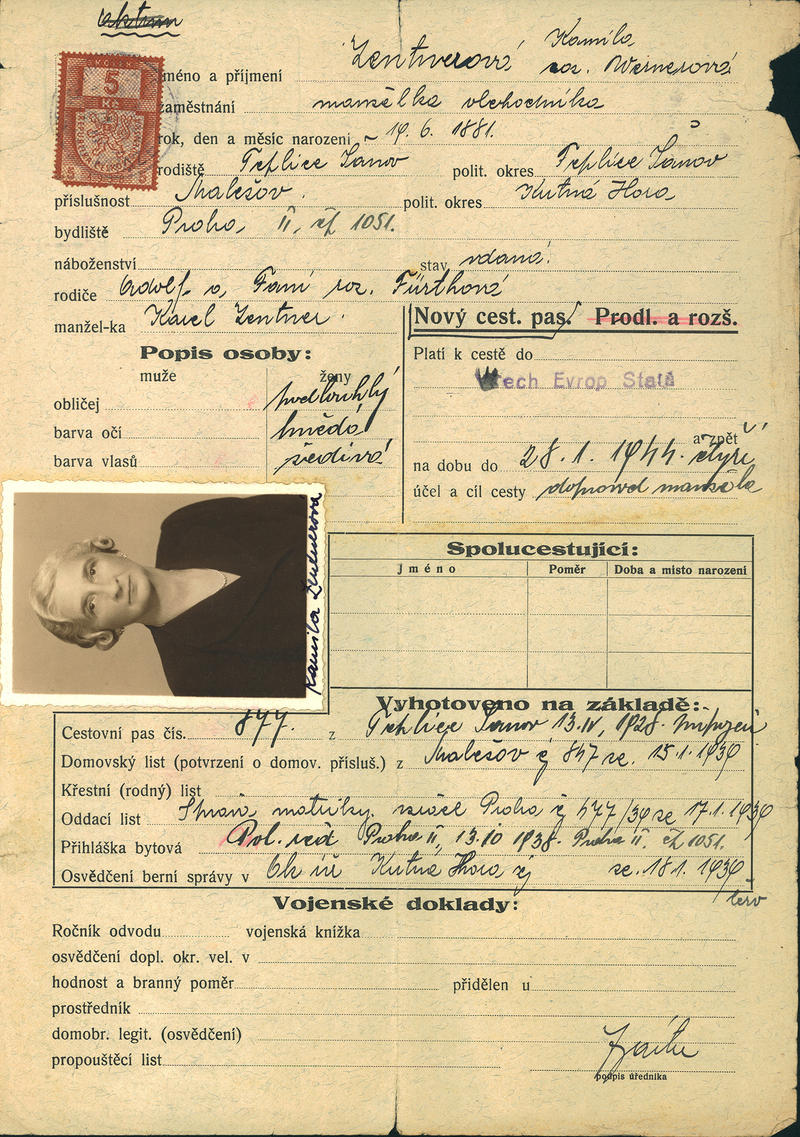 Kamila
Jméno a příjmení Zentnerová roz. Wernerová
zaměstnání manželka obchodníka
rok, den a měsíc narození 19. 6. 1881.
rodiště Teplice Šanov polit. okres Teplice Šanov
příslušnost Malešov. polit. okres Kutná Hora
bydliště Praha, II, čp 1051.
náboženství stav vdaná.
rodiče Adolf a Fani roz. Fürthová
manžel-ka Karel Zentner.
Nový cest. pas. Prodl. a rozš.
Popis osoby:
muže ženy
obličej podlouhlý
barva očí hnědá
barva vlasů šedivá
Platí k cestě do
Všech Evrop Států
a zpět
na dobu do 28. 1. 1944. čtyři
účel a cíl cesty doprovod manžela
5
Kč
Kamila Zentnerová
Spolucestující:
Jméno Poměr Doba a místo narození
Vyhotoveno na základě:
Cestovní pas čís. 877. z Teplice Šanov 13. IV, 1928.
Domovský list (potvrzení o domov. přísluš.) z Malešov čj 847 ze. 15. 1. 1939
Křestní (rodný) list
Oddací list matriky Praha čj 477/39 ze 17. 1. 1939
Přihláška bytová Pol. řed Praha II, 13. 10 1938. Praha II. čp 1051.
Osvědčení berní správy v Kutná Hora čj ze. 18. 1. 1939
Vojenské doklady:
Ročník odvodu vojenská knížka
osvědčení dopl. okr. vel. v
hodnost a branný poměr přidělen u
prostředník
domobr. legit. (osvědčení)
propouštěcí list
podpis úředníka